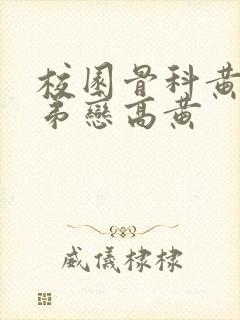 校園骨科黃
弟戀高黃
威儀棣棣